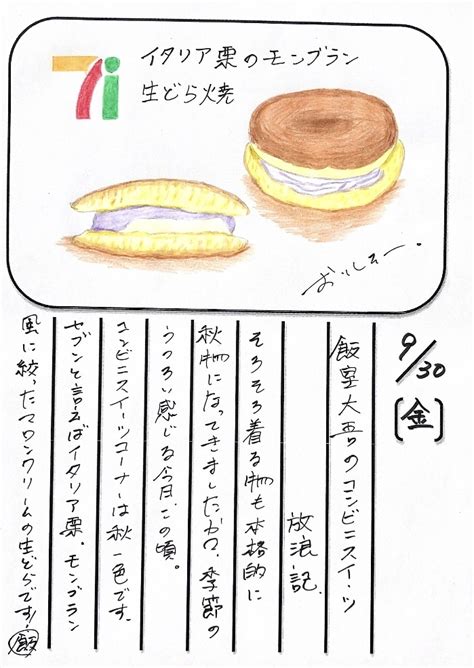 イタリア栗のモンブラン
生どら焼
おいしそー。
9/30
(金)
飯室大吾のコンビニスイーツ
放浪記.
そろそろ着る物も本格的に
秋物になってきましたか?、季節の
うつろい感じる今日この頃。
コンビニスイーツコーナーは秋一色です。
セブンと言えばイタリア栗・モンブラン
風に絞ったマロンクリームの生どらです!
飯